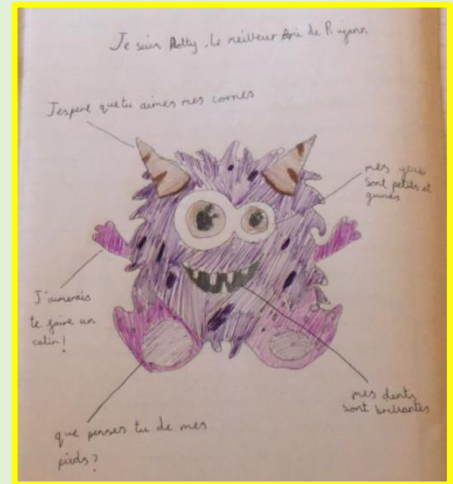 Je suis Motty, Le meilleur Ami de Ryann
J'espère que tu aimes mes cornes
mes yeux
sont petits et
grands
J'aimerais
te faire un
calin!
mes dents
sont brillantes
que penses tu de mes
pieds?